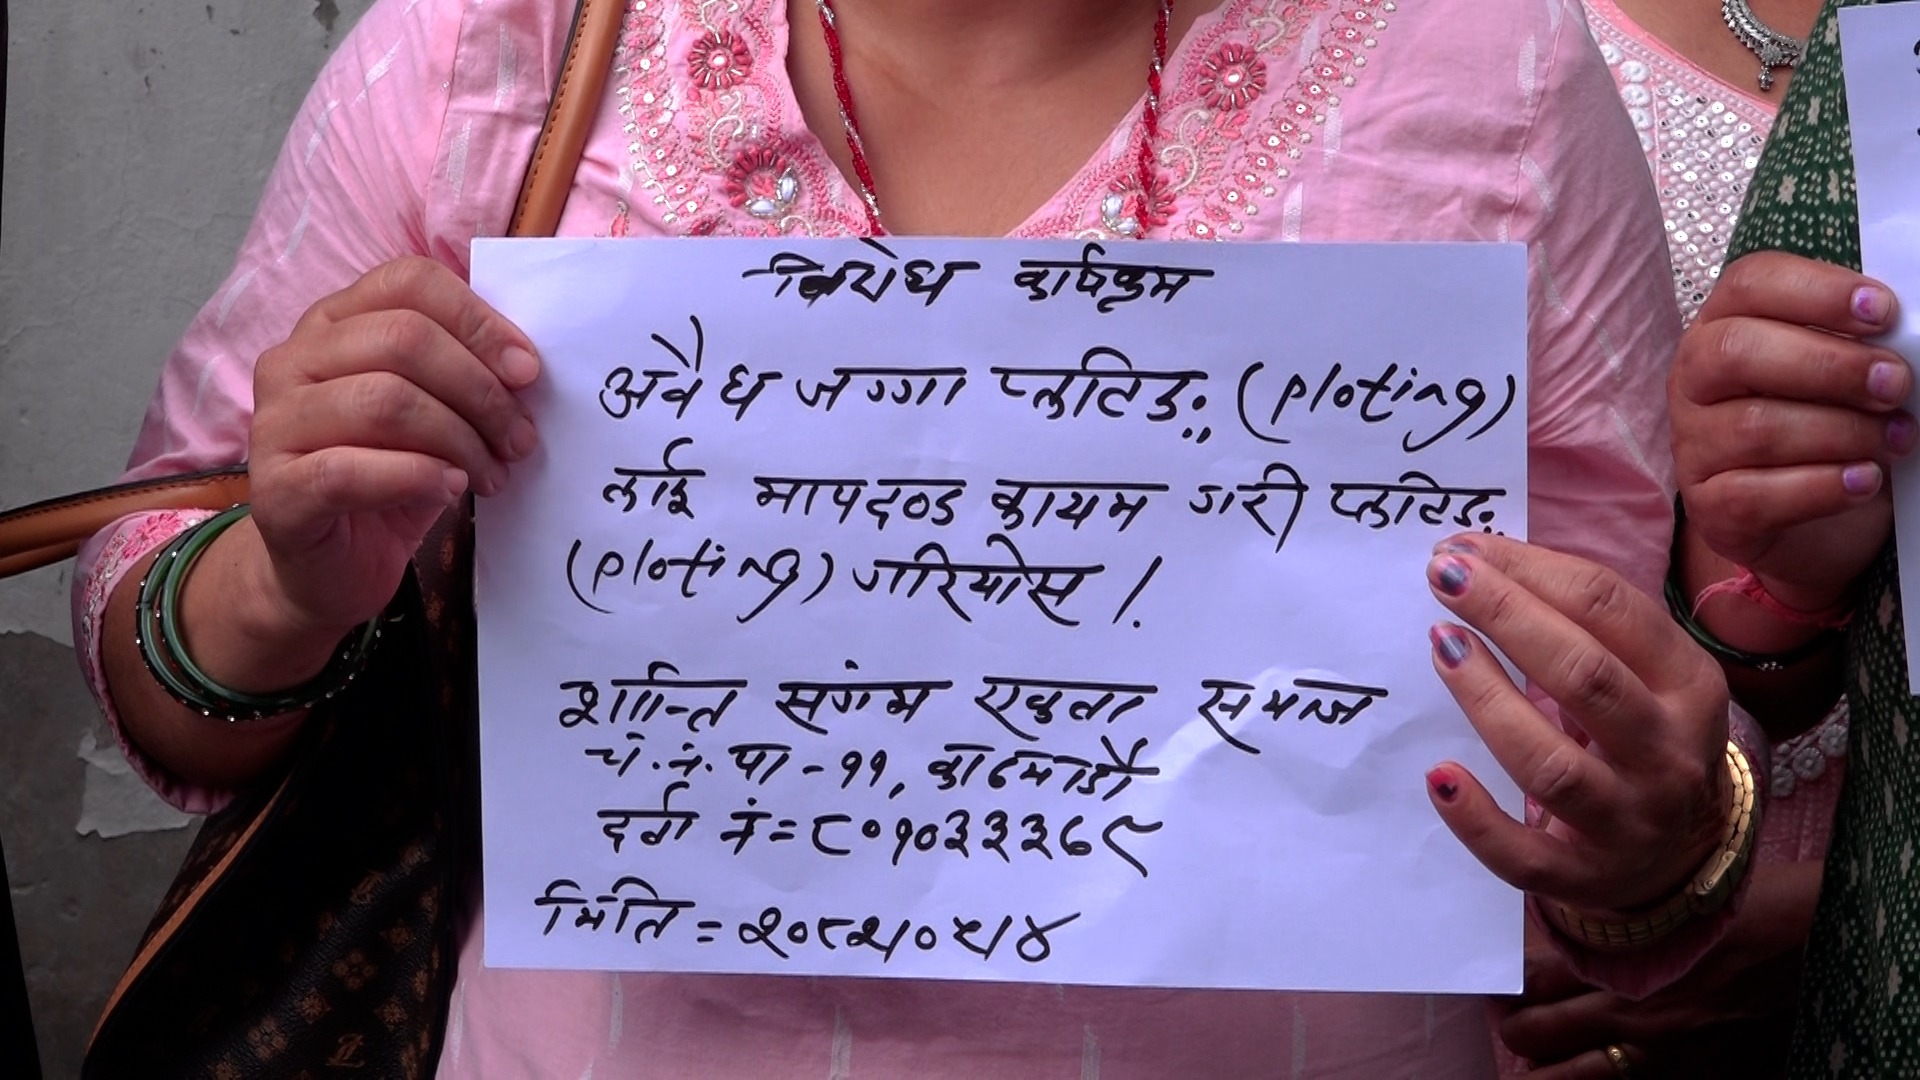 विरोध कार्यक्रम
अवैध जग्गा प्लटिङ्ग (ploting)
लाई मापदण्ड कायम गरी प्लटिङ्ग
(ploting) गरियोस !
शान्ति संगम एकता समाज
चं. न. पा - ११, काठमाडौं
दर्ता नं = ८०१०३३३६९
मिति = २०८२।०५।४